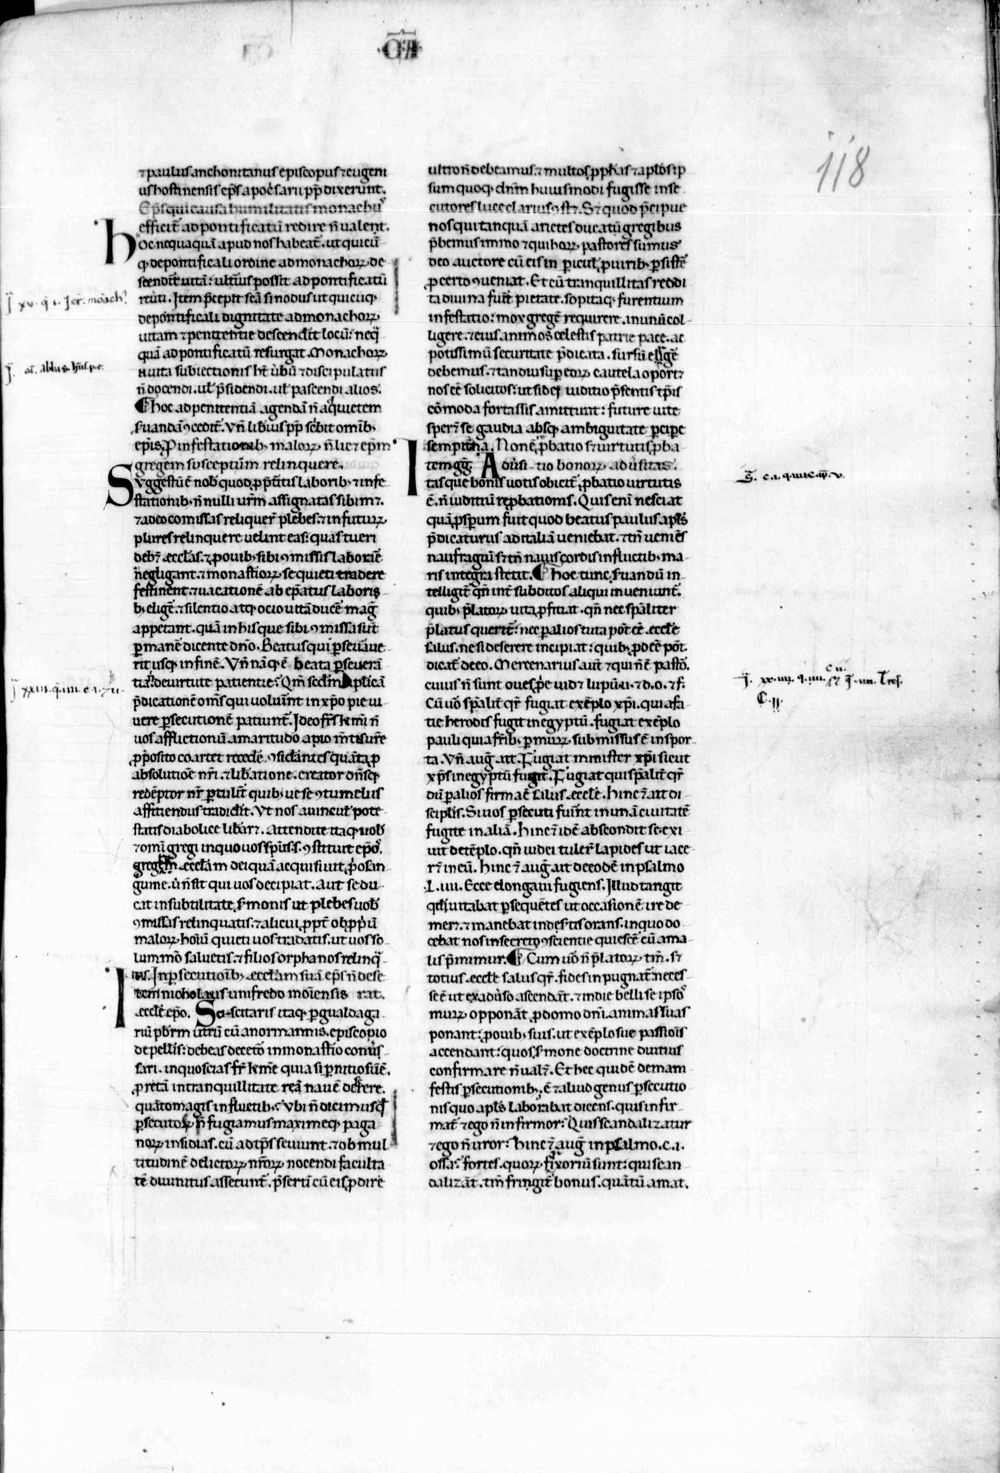 118
⁊ paulus anchonitanus episcopus ⁊ eugeni
us hostinensis ep̄s apoc̄sarii pp̄ dixerunt.
Ep̄s qui causa humilitatis monachus
efficit᷑ ad pontificatū redire n̄ valent.
hoc nequaquā apud nos habeat᷑. ut quicū
q; de pontificali ordine ad monachoꝝ de
scendit uitā: ulterius possit ad pontificatū
reuti. Item p̄cepit sc̄a sinodus ut quicūq;
de pontificali dignitate ad monachoꝝ
uitam ⁊ penitentie descendit locū: neq̄
quā ad pontificatū resurgat. Monachoꝝ
n̄ uita subiectionis h̄t ūbū ⁊ discipulatus
n̄ docendi. uł p̄sidendi. uł pascendi alios.
¶ hoc ad penitentiā agendā n̄ a quietem
epis ꝓ infestationib; maloꝝ n̄ licet ep̄m
gregem susceptum relinquere.
Suggestū ē nob̄ quod p̄ p̄titis laborib; ⁊ infe
stationib; n̄ nulli ur̄m assignatas sibi mr̄.
⁊ adeo comissas reliquer̄ plebes. ⁊ in futuꝝ
plures relinquere uelint eas: quas tueri
debꝫ ecclas. ⁊ ꝓ ouib; sibi ꝯmissis laborie
n̄egligant. ⁊ monastioꝝ se quieti tradere
festinent. ⁊ uacationē ab ep̄atus laboris
b; elige᷑ ⁊ silentio atq; ocio uitā ducē mag̃
appetant. quā in his que sibi ꝯmissa sūt
ꝑmanē dicente dn̄o. Beatus qui ꝑseuaue
rit usq; in finē. Vn̄ nāq; ē beata ꝑseuerā
tia. de uirtute patientie. Qm̄ scd̄m apl̄icā
p̄dicationē om̄s qui uolunt in xp̄o pie ui
uere ꝑsecutionē patiunt᷑. Ideo fr̄s k̄mi n̄
uos afflictionū amaritudo a pio m̄tis ur̄e
ꝓposito coartet recedē. ꝯsidantes quāta ꝓ
absolutiōe nr̄i ⁊ libatione. creator dn̄sq;
redēptor nr̄ ꝑtulit. quib; ut se ꝯtumeliis
afficiendus tradidit. Vt nos a uinculis pote
statis diabolice libar. attendite itaq; uob̄
⁊ om̄i gregi in quo uos sp̄us. s. ꝯstituit ep̄os.
gregem. ecclam dei quā acquisiuit ꝓprio san
guine. ū n̄ sit qui uos decipiat. Aut sedu
cat in subtilitate sermonis ut plebes uob̄
ꝯmissas relinquatis. ⁊ alicui ꝓpt̄
maloꝝ hoīū quieti uos tradatis. ut uos so
lummō saluetis. ⁊ filios orphanos relinq̄
tis. In ꝑsecutioīb; ecclam suā ep̄s n̄ dese
rat. Item nicholaus unifredo moīensis
eccle ep̄o. Sciscitaris itaq; ꝑ gualdaga
riū pb̄rm utrū cū a normannis. episcopio
depellis: debeas decetō in monastio conuer
sari. in quo scias fr̄ k̄me quia si ꝑniciosū ē.
ꝓreta in tranquillitate nauē deserere.
quāto magis in fluctib;: Vbi n̄ dicimus q̄
ꝑsecutoꝝ n̄ fugiamus maximeq; paga
noꝝ insidias. cū ad tp̄s seuiunt. ⁊ ob mul
titudinē delictoꝝ nr̄oꝝ nocendi faculta
tē diuinitus assecunt᷑. p̄sertī cū eis ꝓdire
ultro n̄ debeamus. ⁊ multos ꝓph̄as ⁊ apl̄os ip
sum quoq; dn̄m huiusmodi fugisse inse
cutores luce clarius ꝯstet. Set quod p̄cipue
nos qui tanquā arietes ducatū gregibus
p̄bemus immo ⁊ qui hoꝝ pastores sumus
deo auctore cū eis in ꝑiculis ꝓ uirib; ꝑsiste᷑
ꝓ certo ꝯueniat. Et cū tranquillitas reddi
ta diuina fuit pietate. sopitaq; furentium
infestatio: mox gregē requirere. in unū col
ligere. ⁊ eius animos celestis patrie pace. ac
potissimū securitate p̄dicata. sursū erige᷑
debemus. ⁊ tandiu supeoꝝ cautela oport᷑
nos eē solicitos: ut sidej uiditio p̄sentis tp̄is
cōmoda fortassis amittunt: future uite
sper̄ se gaudia absq; ambiguitate ꝑcipe᷑
sempiterna. Non ē ꝓbatio s; uirtutis ꝓba
Item gg̃. Aduersi tio bonoꝝ. aduersitas.
tas que bonis uotis obicit᷑ ꝓbatio uirtutis
ē. n̄ iuditiū rep̄bationis. Quis enī nesciat
quā ꝓspum fuit quod beatus paulus apl̄s
p̄dicaturus ad italiā ueniebat. ⁊ tn̄ ueniēs
naufragiū s; tn̄ nauis cordis in fluctib; ma
ris integra stetit. ¶ hoc tunc seruandū in
telligit᷑ qn̄ int᷑ subditos aliqui inueniunt᷑.
quib; p̄latoꝝ uita ꝓficiat. qn̄ nec sp̄aliter
p̄latus querit᷑: nec ꝑ alios tuta pōt eē ecclē
salus. ne si deserere incipiat: quib; ꝓdēē pōt
dicat᷑ de eo. Mercenarius aut̄ ⁊ qui n̄ ē pastō.
cuius n̄ sunt oues ꝓpe uidꝫ lupū ⁊ d. o. ⁊ f.
Cū uō sp̄alit᷑ qr̄ fugiat exēplo xp̄i. qui a fa
tie herodis fugit in egyptū. fugiat exēplo
pauli qui a fr̄ib; ꝑ murꝫ submissus ē in spor
ta. Vn̄ aug̃ ait. Fugiat minister xp̄i sicut
xp̄s in egyptū fugit. Fugiat qui sp̄alit᷑ qr̄
dū ꝑ alios firma ē salus ecclē. Hinc ⁊ ait di
scip̄lis. Si uos ꝑsecuti fuint in unā ciuitatē
fugite in aliā. hinc ⁊ idē abscondit se ⁊ exi
uit de tēplo. qn̄ iudei tuler̄ lapides ut iace
rt in eū. hinc ⁊ aug̃ ait de eodē in psalmo
.L.iiii. Ecce elongaui fugiens. Illud tangit
qd̄ uitabat ꝑsequētes ut occasionē ire de
mer. ⁊ manebat in desertis orans. in quo do
cebat nos in secreto ꝯscientie quiescē cū ama
lis p̄mimur. ¶ Cum uō n̄ p̄latoꝝ tm̄. s;
totius. ecclē salus qr̄. fides inpugnat᷑ neces
se ē ut ex aduso ascendat. ⁊ in die belli se ipsos
murꝫ opponāt ꝓ domo dn̄i. animas suas
ponant: ꝓ ouib; suis. ut exēplo sue passiōis
accendant: quos s̄mone doctrine diutius
confirmare n̄ ualꝫ. Et hec quidē de mani
festis ꝑsecutionib;. ē ⁊ aliud genus ꝑsecutio
nis quo apl̄s laborabat dicens. quis infir
mat᷑ ⁊ ego n̄ infirmor: Quis scandalizatur
⁊ ego n̄ uror: hinc ⁊ aug̃ in psalmo. c.i.
ossa: fortes. quoꝝ fixoriū sunt: qui scan
dalizāt᷑. tm̄ fringit᷑ bonus. quātū amat.